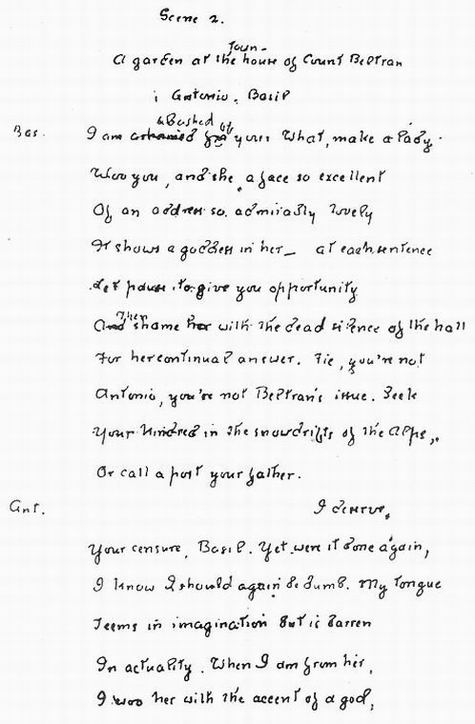 Scene 2.
A garden at the town-house of Count Beltran
Antonio, Basil
Bas. I am ashamed abashed of you. What, make a lady
Woo you, and she a face so excellent
Of an address so admirably lovely
It shows a goddess in her_ at each sentence
Let pause to give you opportunity
And Then shame her with the dead silence of the hall
For her continual answer. Fie, you're not
Antonio, you're not Beltran's issue. Seek
Your kindred in the snowdrifts of the Alps,
Or call a post your father.
Ant. I deserve
Your censure, Basil. Yet were it done again,
I know I should again be dumb. My tongue
Teems in imagination but is barren
In actuality. When I am from her,
I woo her with the accent of a god,